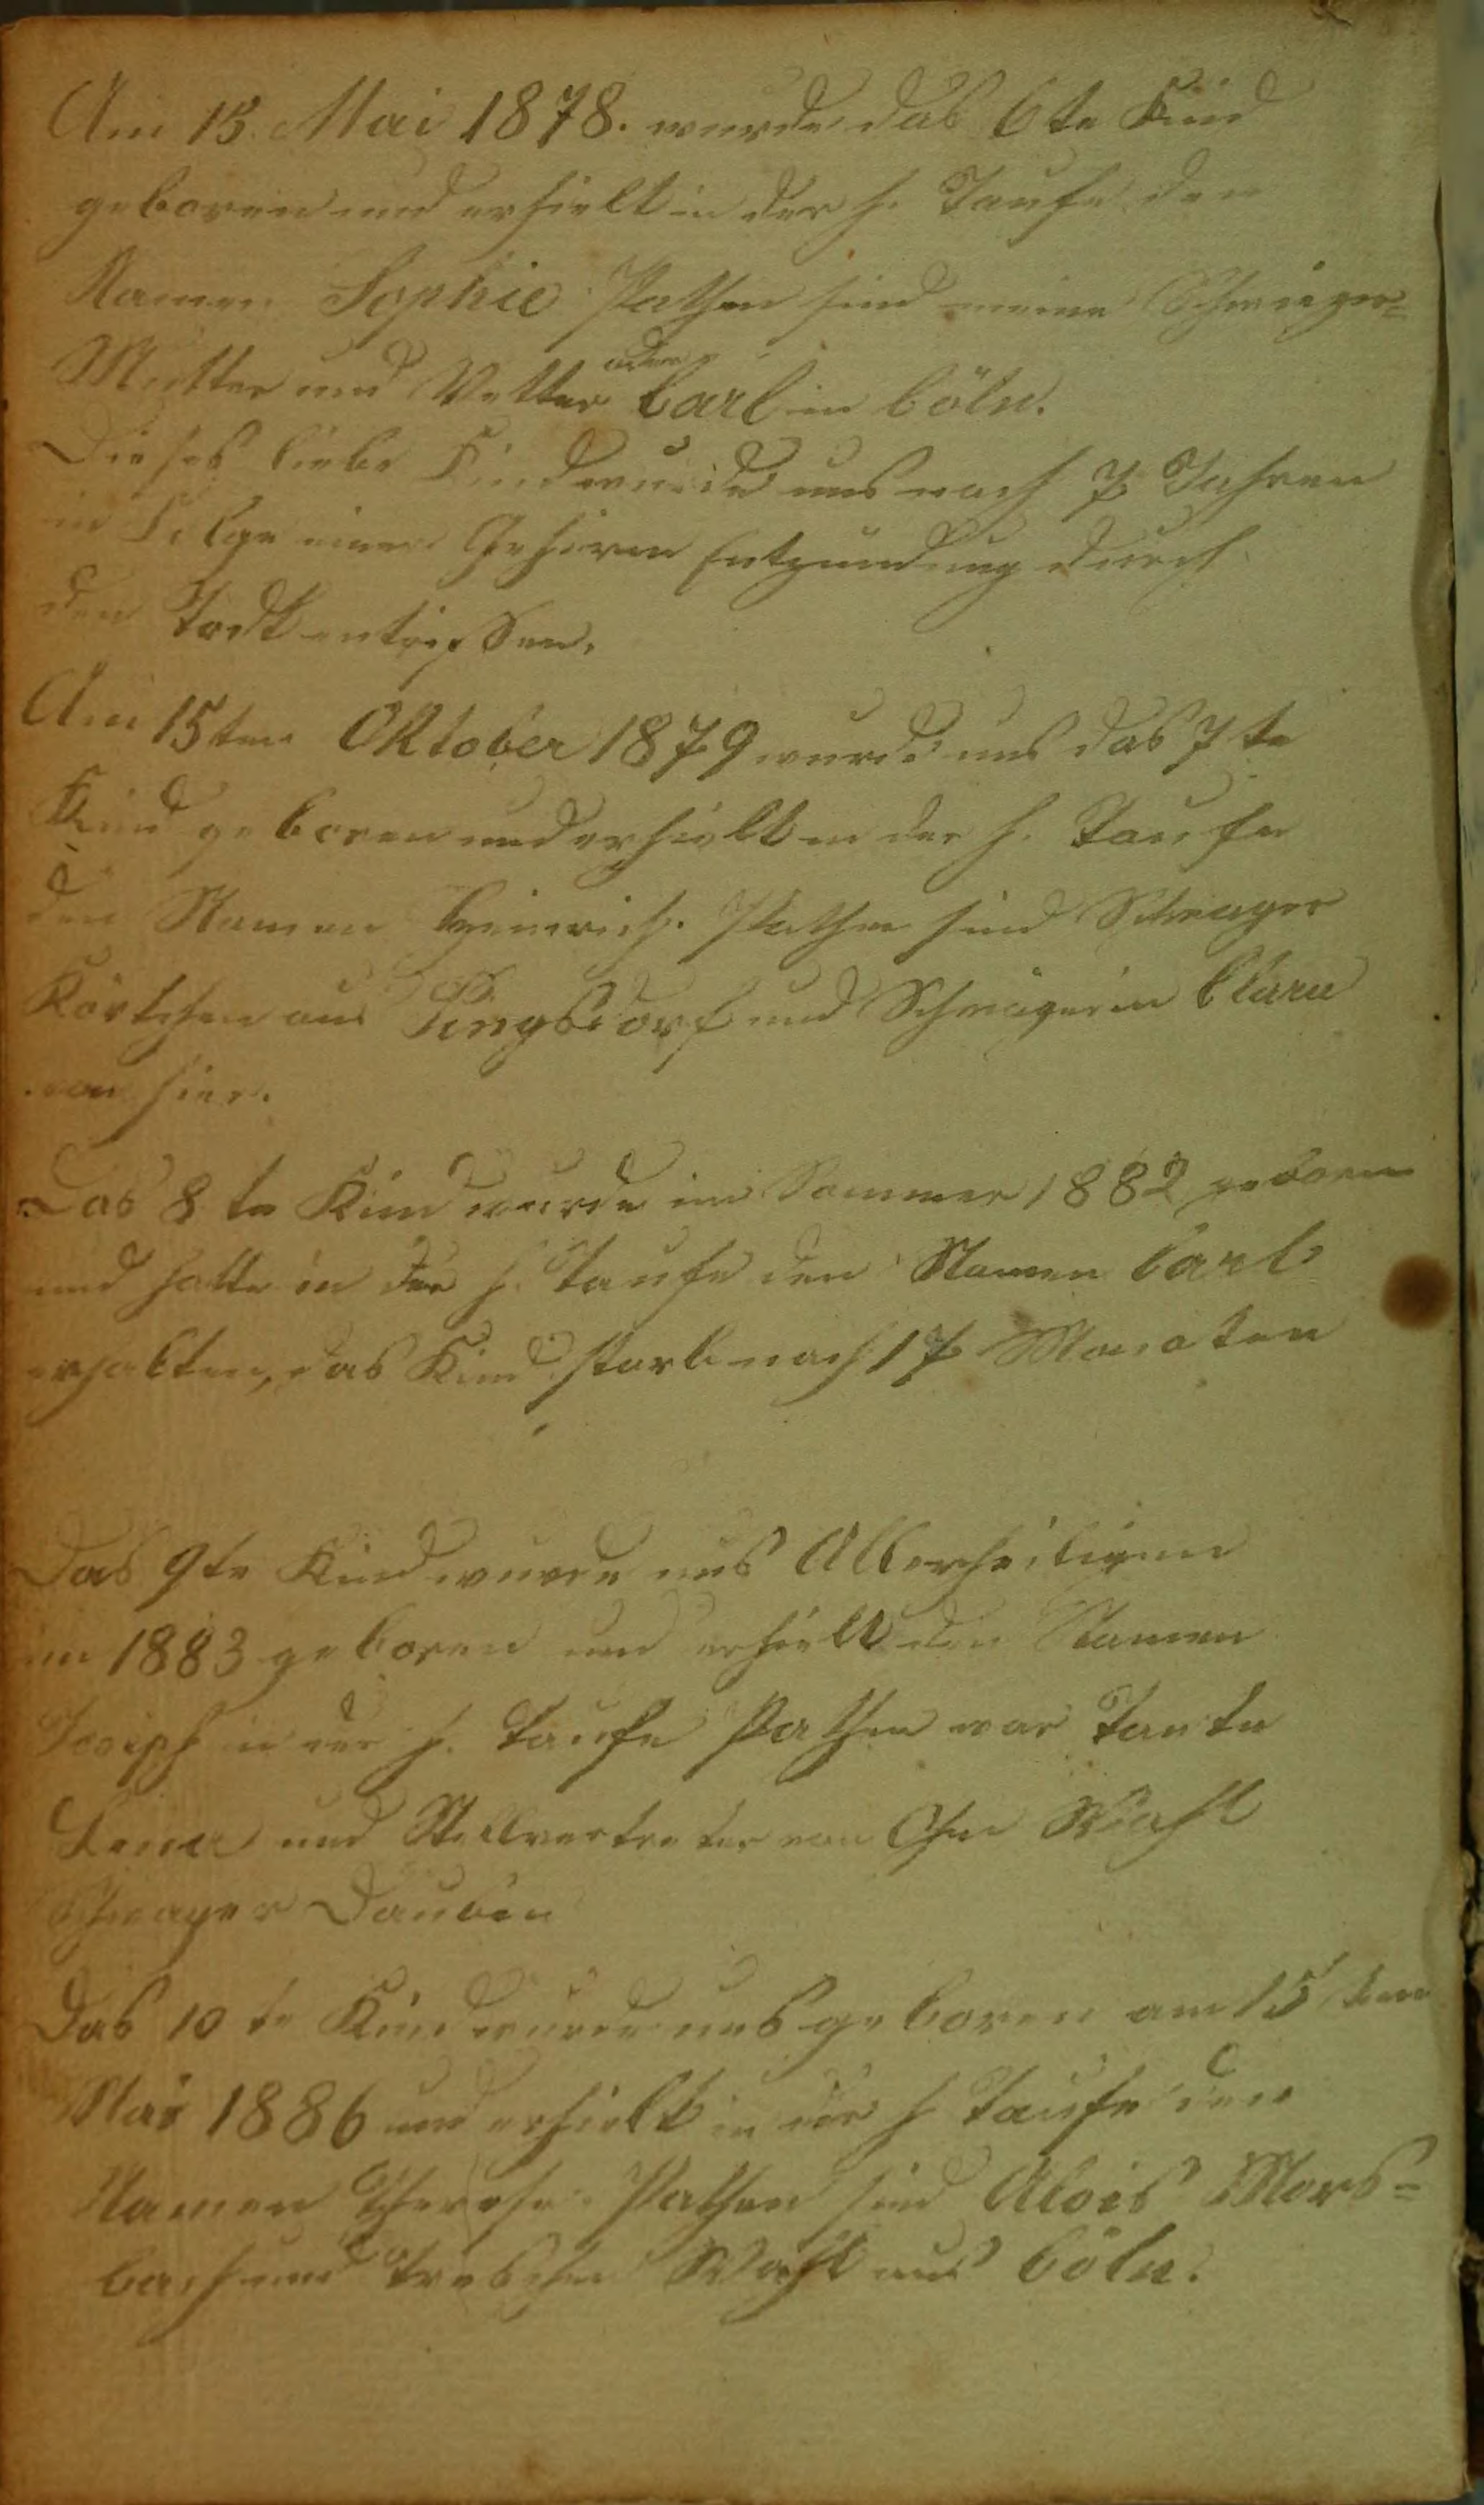 Am 15. Mai 1878. wurde das 6te Kind
geboren und erhielt in der h. Taufe den
Namen Sophie Pathen sind meine Schwieger=
Mutter und Vetter Carl in Cöln.
Dieses liebe Kind wurde uns nach 7 Jahren
in Folge einer Gehirn Entzündung durch
den Todt entrissen.
Am 15ten Oktober 1879 wurde uns das 7te
Kind geboren und erhielt in der h. Taufe
den Namen Heinrich. Pathen sind Schwager
aus Pingsdorf und Schwägerin Clara
von hier.
Das 8te Kind wurde im Sommer 1882 geboren
und hatte in der h. Taufe den Namen Carl
erhalten, das Kind starb nach 17 Monaten
Das 9te Kind wurde uns Allerheiligen
im 1883 geboren und erhielt den Namen
Joseph in der h. Taufe Pathen war Tante
Lena und Stellvertreter von Ohm Wahl
Schwager Daubin
Das 10te Kind wurde uns geboren am 15ten
Mai 1886 und erhielt in der h Taufe den
Namen Therese. Pathen sind Alois Mors=
bach und Wahl aus Cöln.